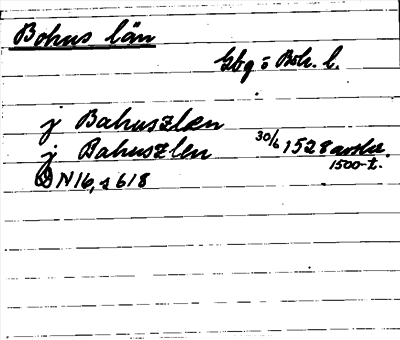 Bohus län
Gbg o Boh. l.
j Bahuszlæn
j Bahuszlen 30/6 1528 avskr.
1500-t.
DN 16, s 618